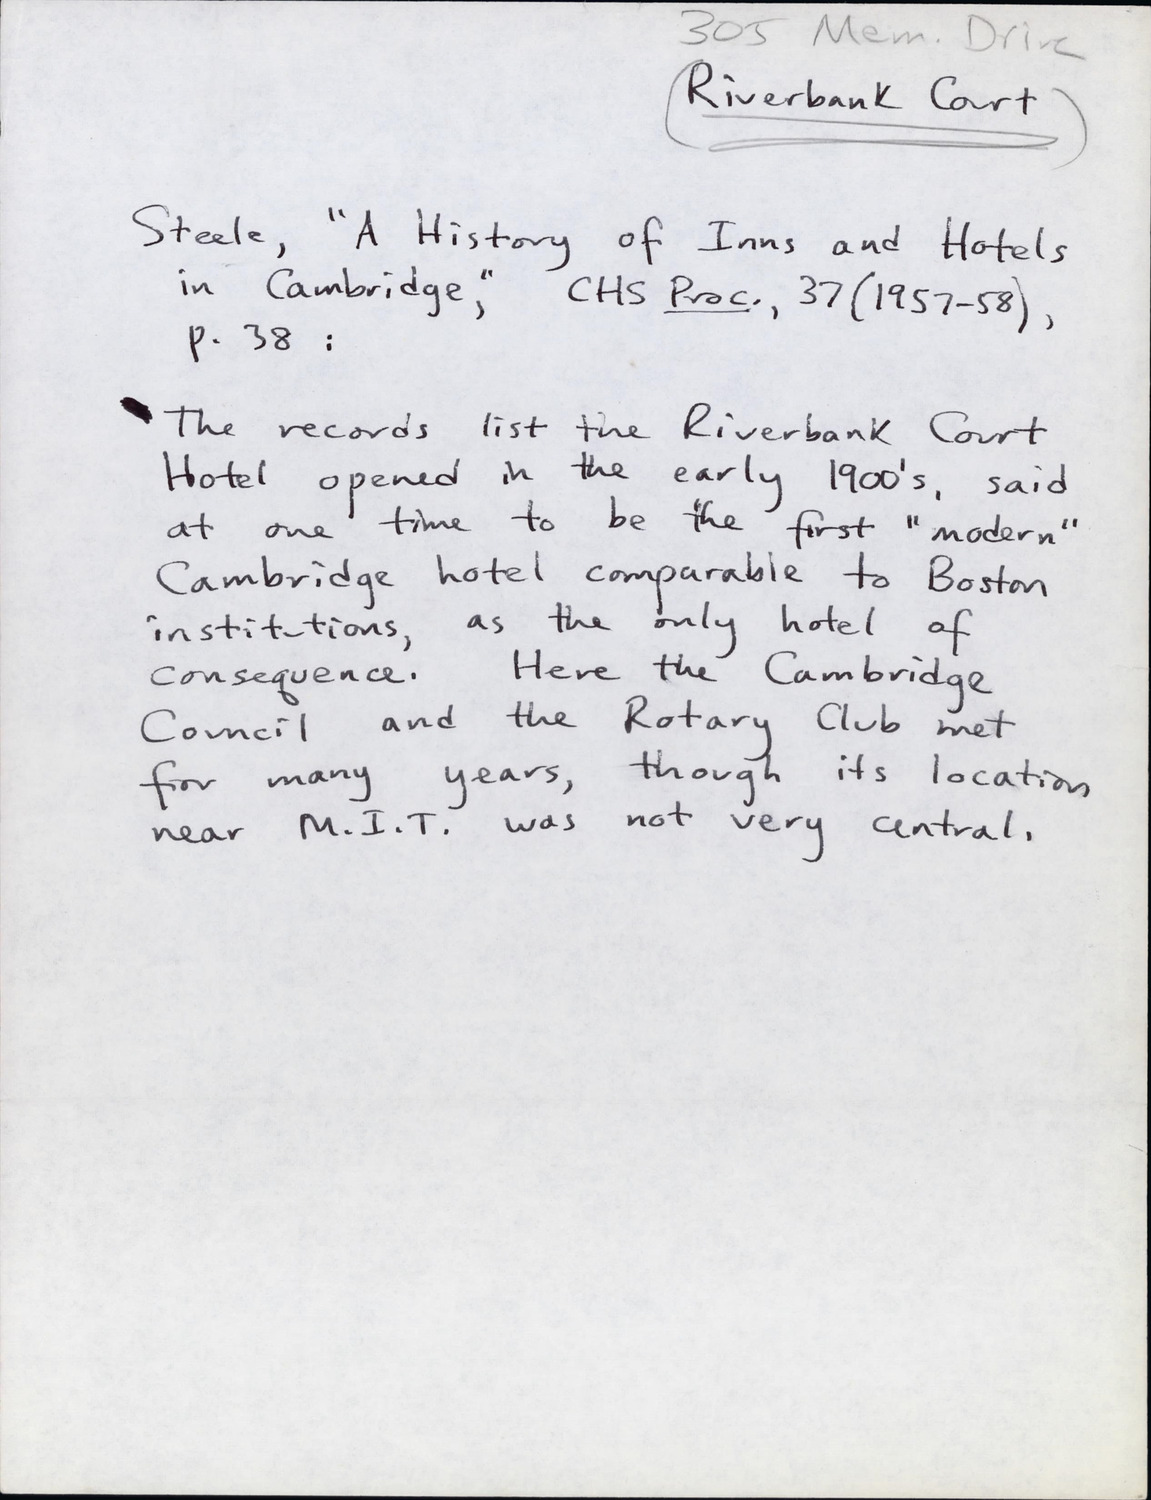 305 Mem. Drive
(Riverbank Court)
Steele, "A History of Inns and Hotels
in Cambridge," CHS Proc., 37 (1957-58),
p. 38 :
The records list the Riverbank Court
Hotel opened in the early 1900's, said
at one time to be the first "modern"
Cambridge hotel comparable to Boston
institutions, as the only hotel of
consequence. Here the Cambridge
Council and the Rotary Club met
for many years, though its location
near M.I.T. was not very central.